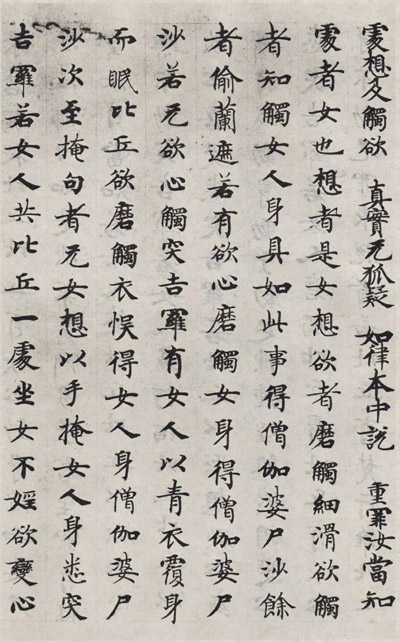 處想及觸欲 真實无狐疑 如律本中說 重罪汝當知
處者女也想者是女想欲者磨觸細滑欲觸
者知觸女人身具如此事得僧伽婆尸沙餘
者偷蘭遮若有欲心磨觸女身得僧伽婆尸
沙若无欲心觸突吉羅有女人以青衣覆身
而眠比丘欲磨觸衣悮得女人身僧伽婆尸
沙次至掩句者无女想以手掩女人身悉突
吉羅若女人共比丘一處坐女不婬欲變心